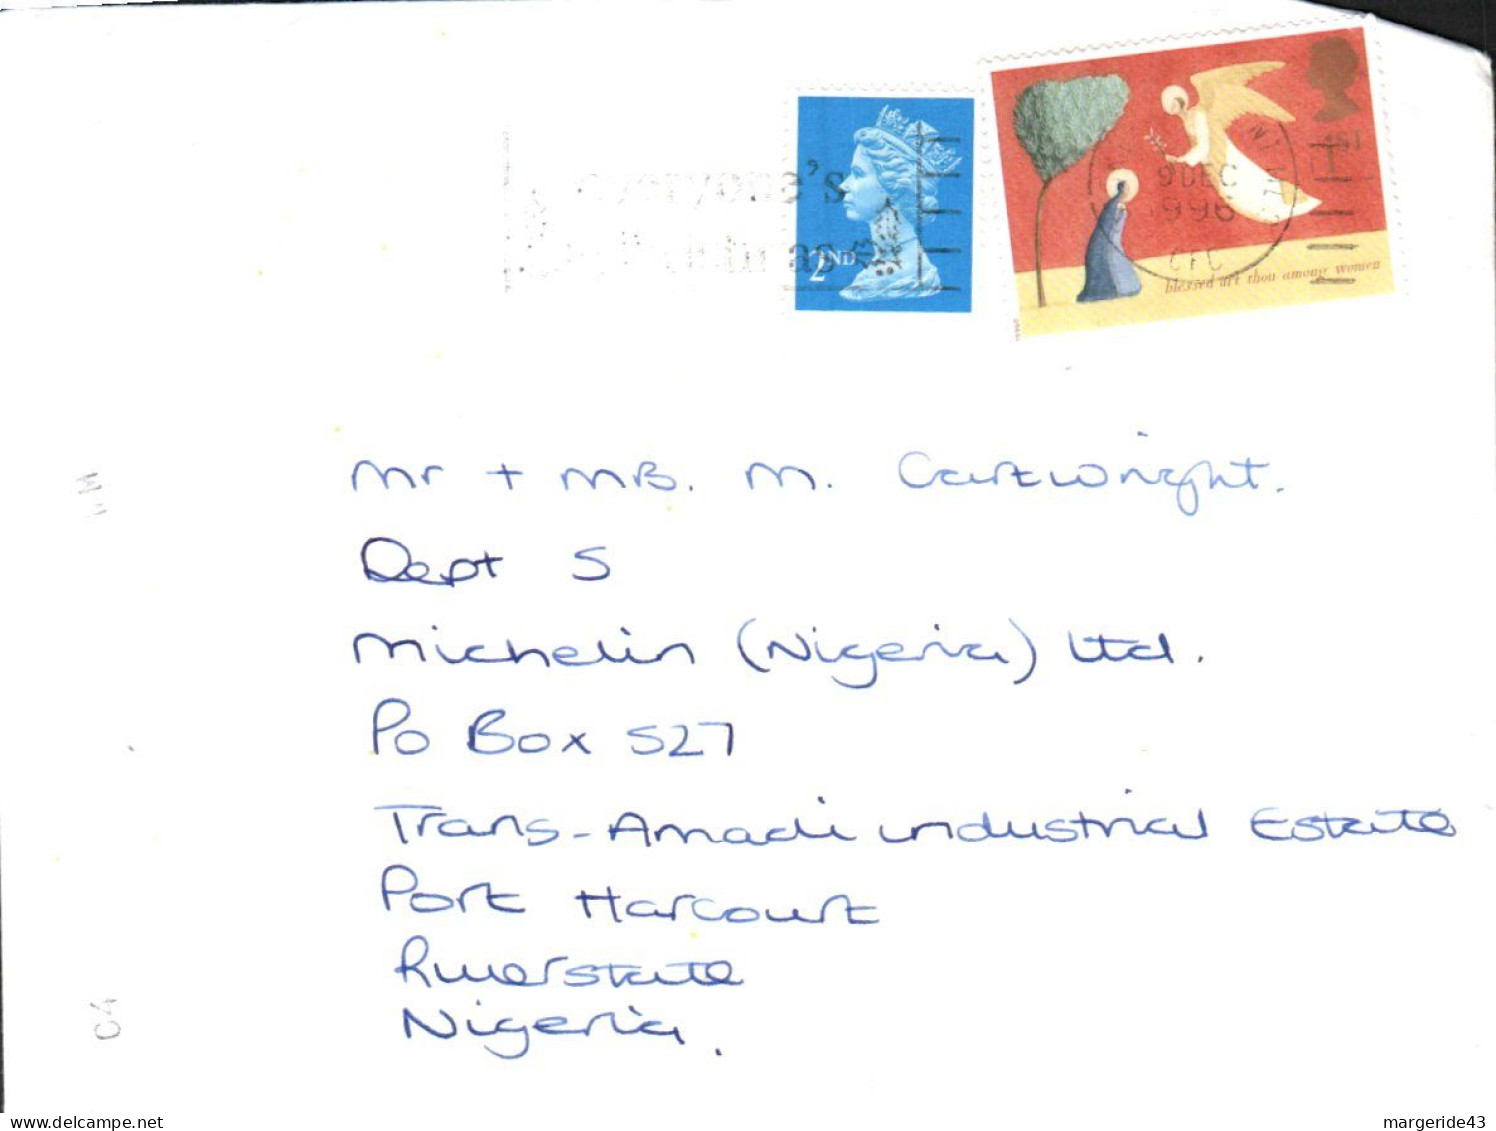 everyone's
in as
2ND
1ST
9 DEC
1996
blessed art thou among women
Mr + Mrs. M. Cartwright.
Dept S
Michelin (Nigeria) Ltd.
Po Box 527
Trans-Amadi industrial Estate
Port Harcourt
Riverstate
Nigeria.
C4
www.delcampe.net
margeride43